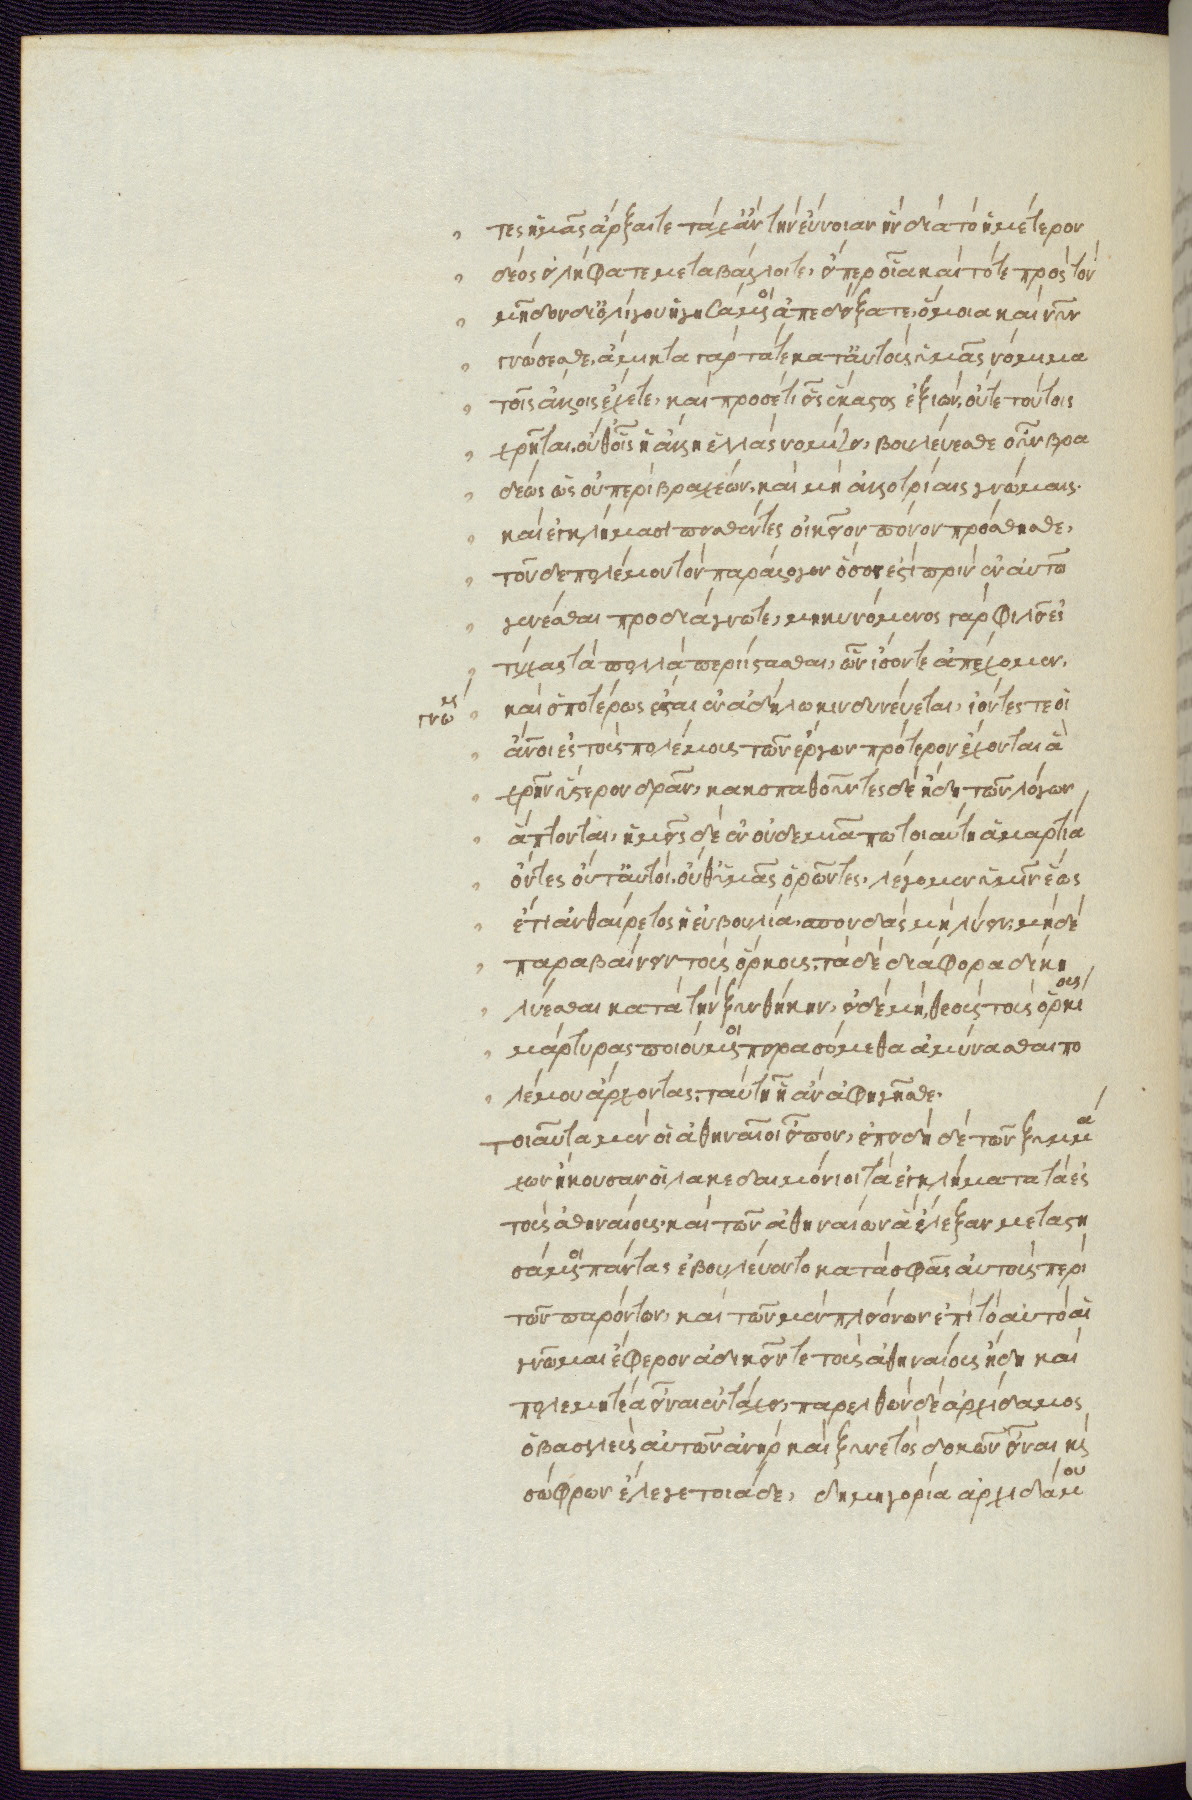 τες ἡμᾶς ἄρξαιτε τάχ' ἂν τὴν εὔνοιαν ἣν διὰ τὸ ἡμέτερον
δέος εἰλήφατε μεταβάλλοιτε, εἴπερ οἷα καὶ τότε πρὸς τὸν
μῆδον δι' ὀλίγου ἡγησάμενοι ἀπεδείξατε, ὅμοια καὶ νῦν
γνώσεσθε, ἄμικτα γὰρ τά τε καθ' ὑμᾶς αὐτοὺς νόμιμα
τοῖς ἄλλοις ἔχετε, καὶ προσέτι εἷς ἕκαστος ἐξιών, οὔτε τούτοις
χρῆται, οὔθ' οἷς ἡ ἄλλη ἑλλὰς νομίζει, βουλεύεσθε οὖν βρα
δέως ὡς οὐ περὶ βραχέων, καὶ μὴ ἀλλοτρίαις γνώμαις.
καὶ ἐγκλήμασι πεισθέντες οἰκεῖον πόνον πρόσθησθε,
τοῦ δὲ πολέμου τὸν παράλογον ὅσος ἐστὶ πρὶν ἐν αὐτῷ
γενέσθαι προδιάγνωτε, μηκυνόμενος γὰρ φιλεῖ ἐς
τύχας τὰ πολλὰ περιίστασθαι, ὧν ἴσον τε ἀπέχομεν.
καὶ ὁποτέρως ἔσται ἐν ἀδήλῳ κινδυνεύεται, ἰόντές τε οἱ
ἄνοι ἐς τοὺς πολέμους τῶν ἔργων πρότερον ἔχονται ἃ
χρῆν ὕστερον δρᾶν, κακοπαθοῦντες δὲ ἤδη τῶν λόγων
ἅπτονται, ἡμεῖς δὲ ἐν οὐδεμιᾷ πω τοιαύτῃ ἁμαρτίᾳ
ὄντες οὔτ' αὐτοί, οὔθ' ὑμᾶς ὁρῶντες, λέγομεν ὑμῖν ἕως
ἔτι αὐθαίρετος ἡ εὐβουλία, σπονδὰς μὴ λύειν, μηδὲ
παραβαίνειν τοὺς ὅρκους, τὰ δὲ διάφορα δίκῃ
λύεσθαι κατὰ τὴν ξυνθήκην, εἰ δὲ μή, θεοὺς τοὺς ὁρκίους
μάρτυρας ποιούμενοι πειρασόμεθα ἀμύνασθαι πο
λέμου ἄρχοντας, ταύτῃ ᾗ ἂν ἀφηγῆσθε.
τοιαῦτα μὲν οἱ ἀθηναῖοι εἶπον, ἐπειδὴ δὲ τῶν ξυμμά
χων ἤκουσαν οἱ λακεδαιμόνιοι τὰ ἐγκλήματα τὰ ἐς
τοὺς ἀθηναίους, καὶ τῶν ἀθηναίων ἃ ἔλεξαν μεταστη
σάμενοι πάντας ἐβουλεύοντο κατὰ σφᾶς αὐτοὺς περὶ
τῶν παρόντων, καὶ τῶν μὲν πλειόνων ἐπὶ τὸ αὐτὸ αἱ
γνῶμαι ἔφερον ἀδικεῖν τε τοὺς ἀθηναίους ἤδη καὶ
πολεμητέα εἶναι ἐν τάχει, παρελθὼν δὲ ἀρχίδαμος
ὁ βασιλεὺς αὐτῶν ἀνὴρ καὶ ξυνετὸς δοκῶν εἶναι καὶ
σώφρων ἔλεγε τοιάδε, δημηγορία ἀρχιδάμου